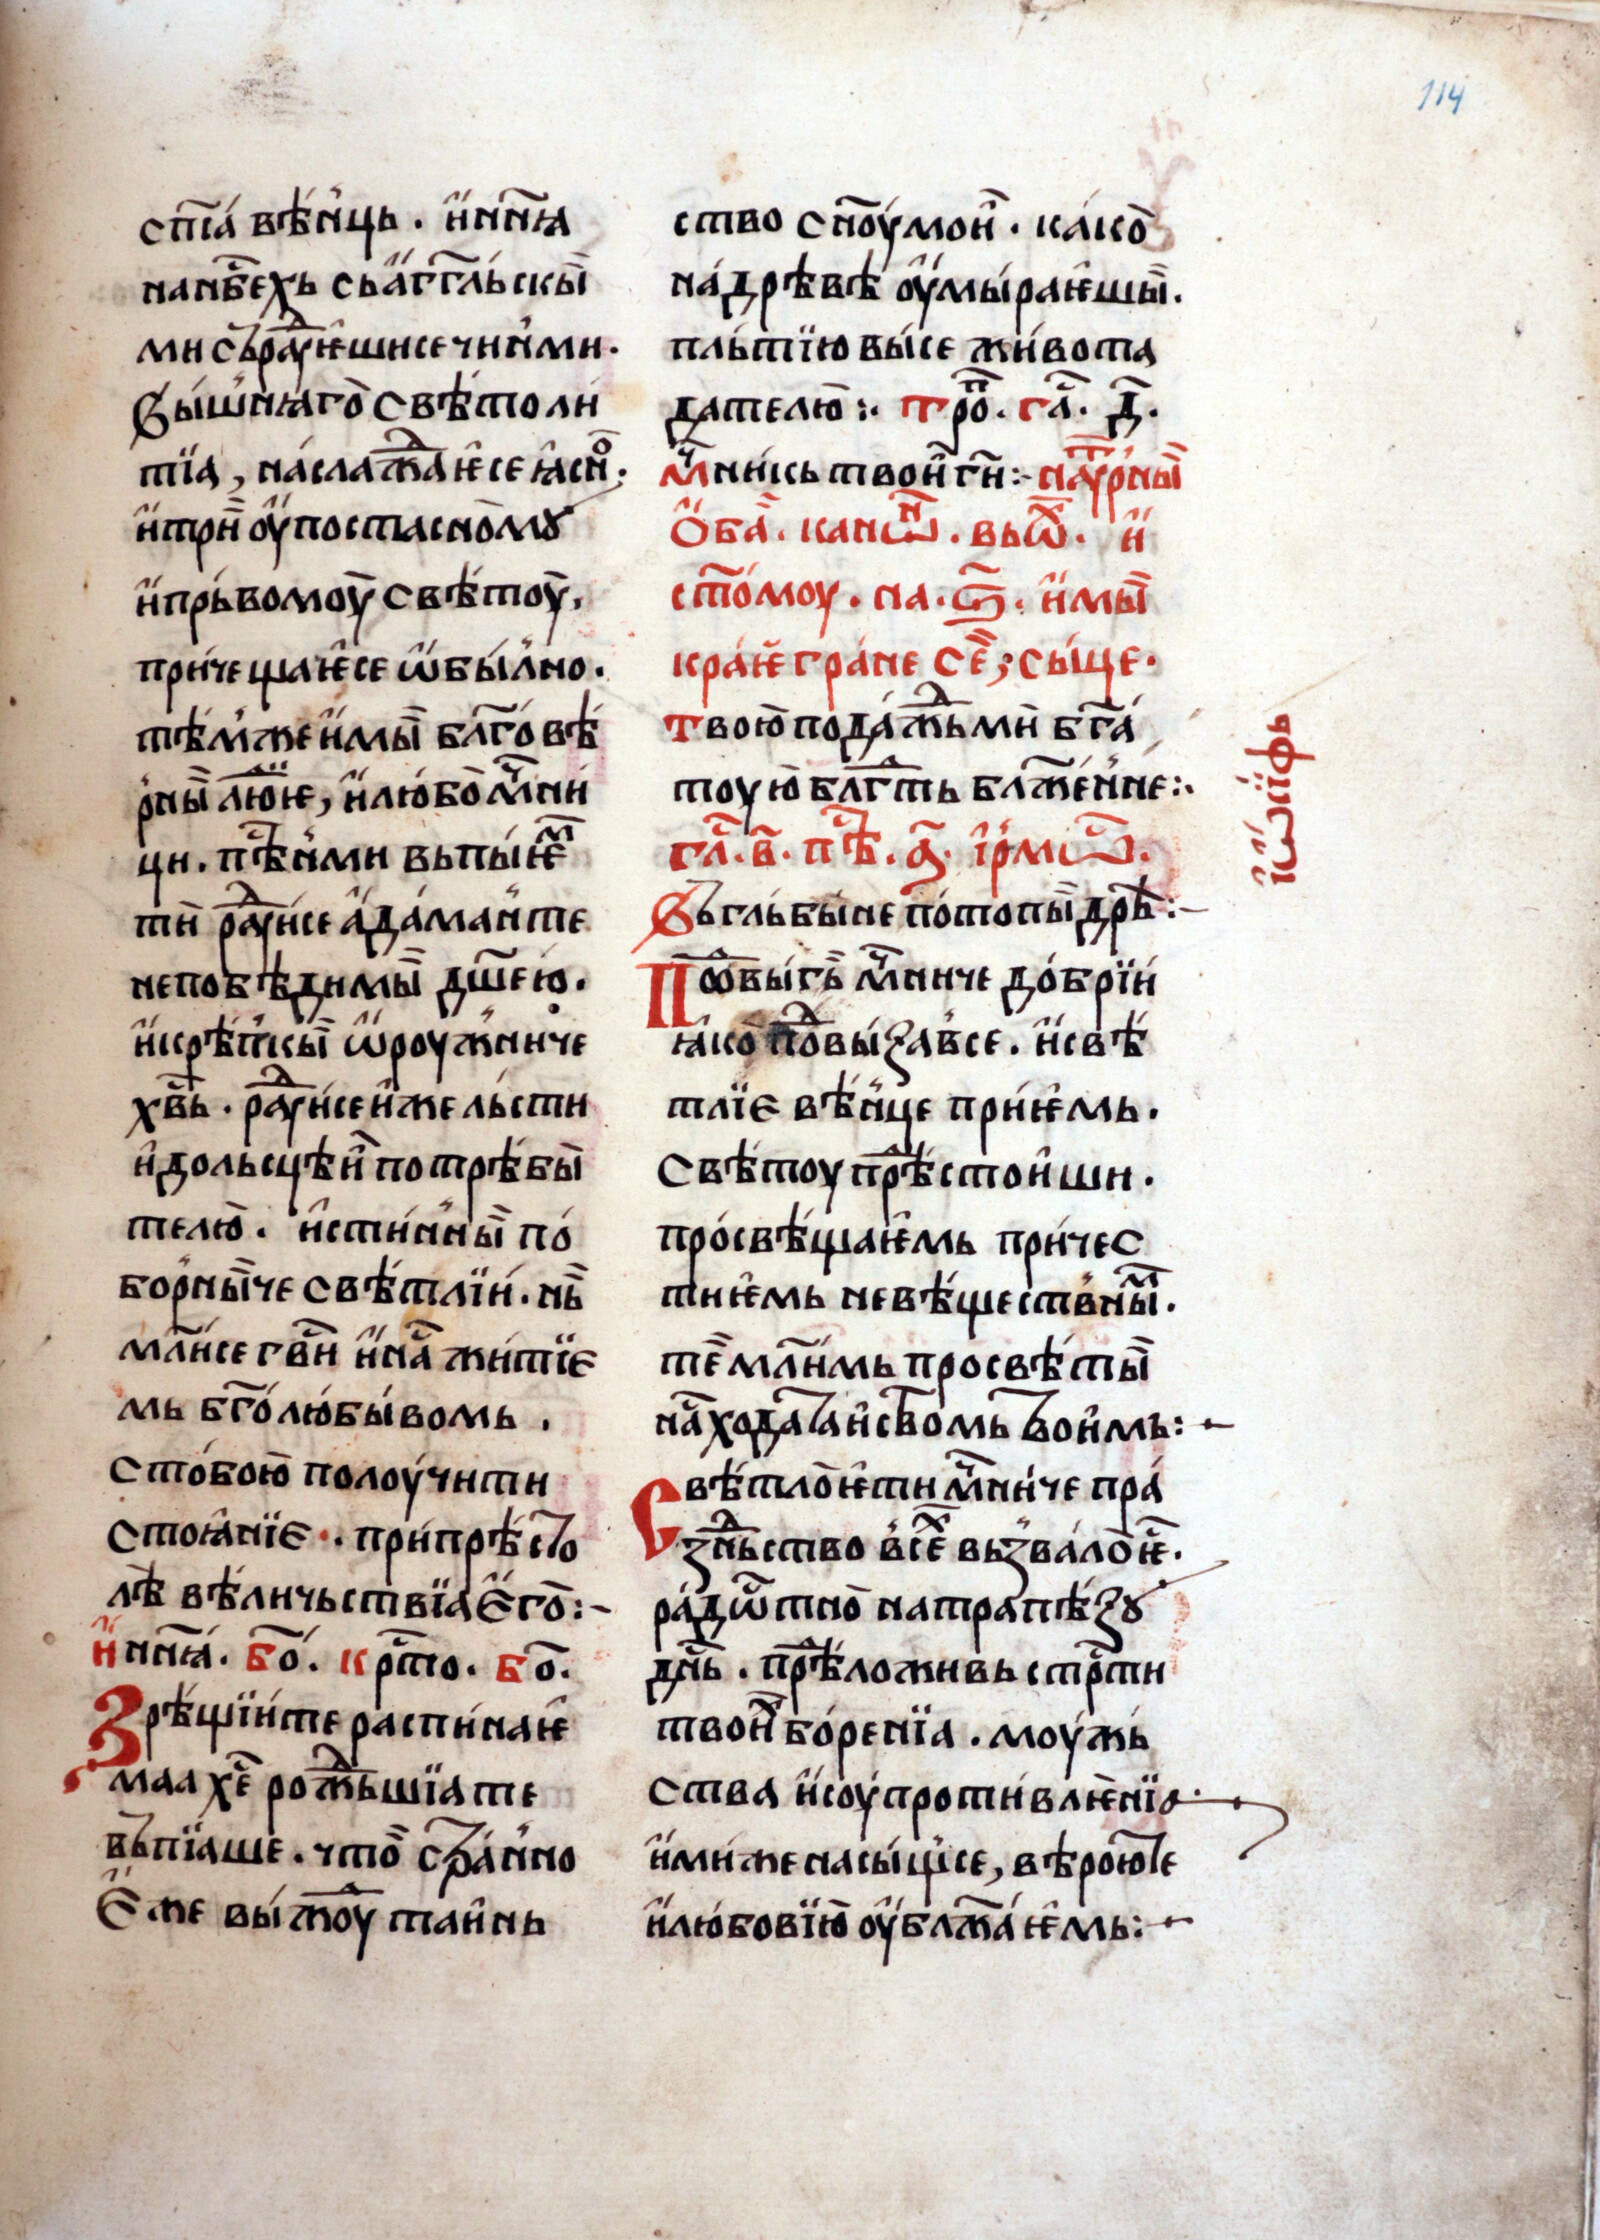 114
спⷭ҇їа́ вѣ́н҆ць. и҆ нн҃ꙗ
на нб҃сехь сь а҆гг҃льскыи҆
ми сьраⷣꙋ҆ѥшисе чин҆ми.
Вы́шнꙗго̀ свѣ́толи
тїа, на́слажⷣаѥсе ꙗ҆сно.
и҆ три оу҆постасно́мꙋ
и҆ прь́вомоу̀ свѣ́тоу̀,
при́чещаѥ҆се ѡ҆бы́лно.
тѣ́мже и҆мы блг҃о́вѣ
рны люⷣїѥ, и҆ лю́бомчⷩ҇и
ци. пѣⷭ҇нми вьпыѥⷨ
тѝ раⷣꙋ́исе а҆да́ман҆те
непобѣ́димы дш҃ею.
и҆ крѣ́пкы ѡ҆роужниче
хв҃ь. раⷣꙋ́исе и҆же льсти
и҆дольсцѣи потрѣ́бы
телю̀. и҆сти́нны по́
борны́че свѣ́тлїи. нь
мл҃исе гв҃и и҆ на жи́тїѥ
мь бг҃олю́бы́вомь.
с то́бою̀ полоу́чити
стоꙗ́нїе. при прѣ́сто
лѣ вѣ́личьствїа е҆го:~
И҆ нн҃ꙗ. бо. крⷭ҇то. бо.
Зрѣ́щїи те распи́наѥ
маа хе рожⷣьшїа те
вьпїаше. что̀ стра́нно
Е҆же вы́жⷣоу таи҆нь
ство с҃ноу́ мои. ка́ко
на дрѣ́вѣ оу҆мы́раѥши.
пль́тїю вы́се жи́вота
дателю̀:. трⷪ҇. гла. д҃.
Мчⷩ҇и́кь твои ги:~ на ꙋтрны
О҆ба каноⷩ҇. вь ѡⷯ. и҆
ст҃о́моу. на. ѕ҃. и҆мы
кра́ѥ гра́не се; сы́це.
Твою̀ пода́жⷣь ми бг҃а́
тоую блгⷣть блаже́нне:.
гл. в҃. пѣⷭ҇. а҃. і҆рмоⷭ҇.
Вь глыбы́не по́топы дрѣ:~
Повы́гь мчⷩ҇иче до́брїи
ꙗ҆ко поⷣвы́завсе. и҆ свѣ́
тлїе вѣ́нце при́ѥмь.
свѣ́тоу прѣⷣстои҆ши.
про́свѣ́щаѥмь при́чес
тиѥмь не вѣ́ществны.
те мл҃имь просвѣ́ты
на хода́таиствомь твоимь:~
Свѣ́тло ѥ҆ти мчⷩ҇и́че пра́
зⷣньство всеⷯ вьзва́ло ѥ.
ра́дѡстно на трапѣ́зꙋ
дн҃ь. прѣⷣложивь стрⷭ҇ти
твои бо́ренїа. моу́жь
ства и҆ соу́проти́влѥнїа
и҆ми́же насы́щ҆се, вѣ́рою те
и҆ лю́бовїю̀ оу҆блажа́ѥмь:~
і҆ѡ҆си́фь